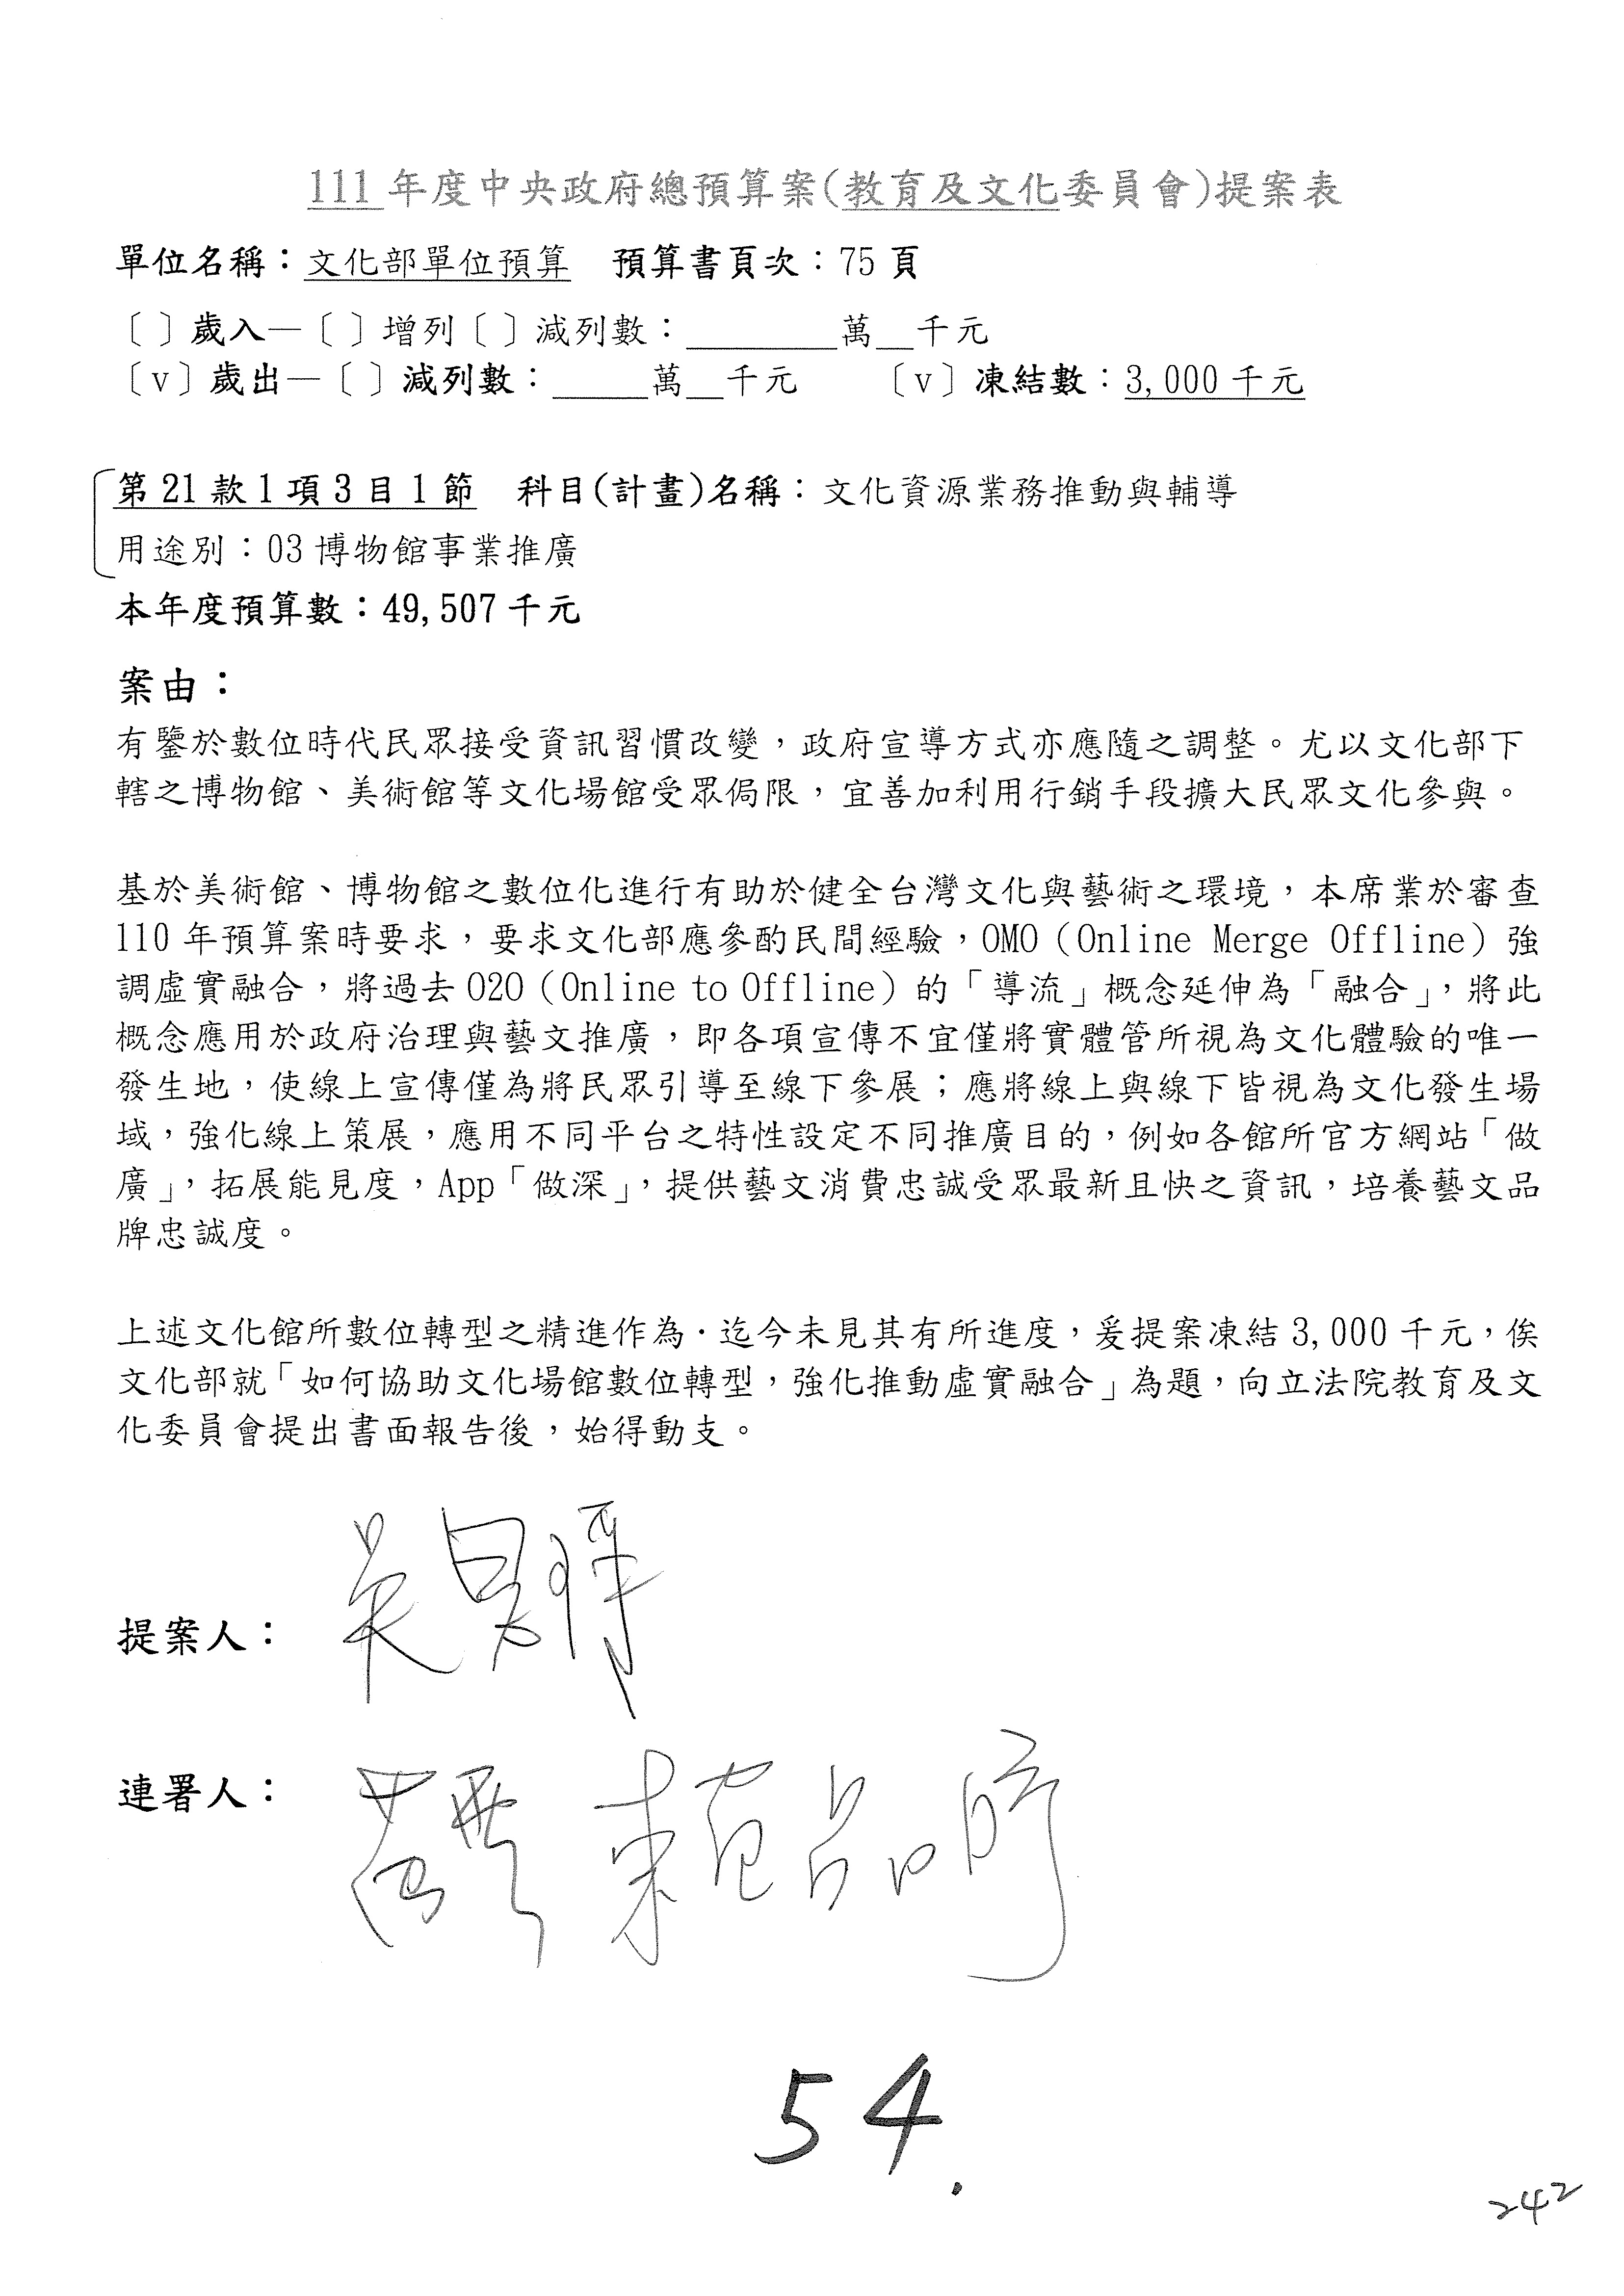 111 年度中央政府總預算案(教育及文化委員會)提案表
單位名稱：文化部單位預算　預算書頁次：75 頁
〔 〕歲入—〔 〕增列〔 〕減列數：________萬__千元
〔v〕歲出—〔 〕減列數：_____萬__千元　〔v〕凍結數：3,000 千元
第 21 款 1 項 3 目 1 節　科目(計畫)名稱：文化資源業務推動與輔導
用途別：03 博物館事業推廣
本年度預算數：49,507 千元
案由：
有鑒於數位時代民眾接受資訊習慣改變，政府宣導方式亦應隨之調整。尤以文化部下
轄之博物館、美術館等文化場館受眾侷限，宜善加利用行銷手段擴大民眾文化參與。
基於美術館、博物館之數位化進行有助於健全台灣文化與藝術之環境，本席業於審查
110 年預算案時要求，要求文化部應參酌民間經驗，OMO（Online Merge Offline）強
調虛實融合，將過去 O2O（Online to Offline）的「導流」概念延伸為「融合」，將此
概念應用於政府治理與藝文推廣，即各項宣傳不宜僅將實體管所視為文化體驗的唯一
發生地，使線上宣傳僅為將民眾引導至線下參展；應將線上與線下皆視為文化發生場
域，強化線上策展，應用不同平台之特性設定不同推廣目的，例如各館所官方網站「做
廣」，拓展能見度，App「做深」，提供藝文消費忠誠受眾最新且快之資訊，培養藝文品
牌忠誠度。
上述文化館所數位轉型之精進作為．迄今未見其有所進度，爰提案凍結 3,000 千元，俟
文化部就「如何協助文化場館數位轉型，強化推動虛實融合」為題，向立法院教育及文
化委員會提出書面報告後，始得動支。
提案人：
連署人： 賴品妤
54.
242